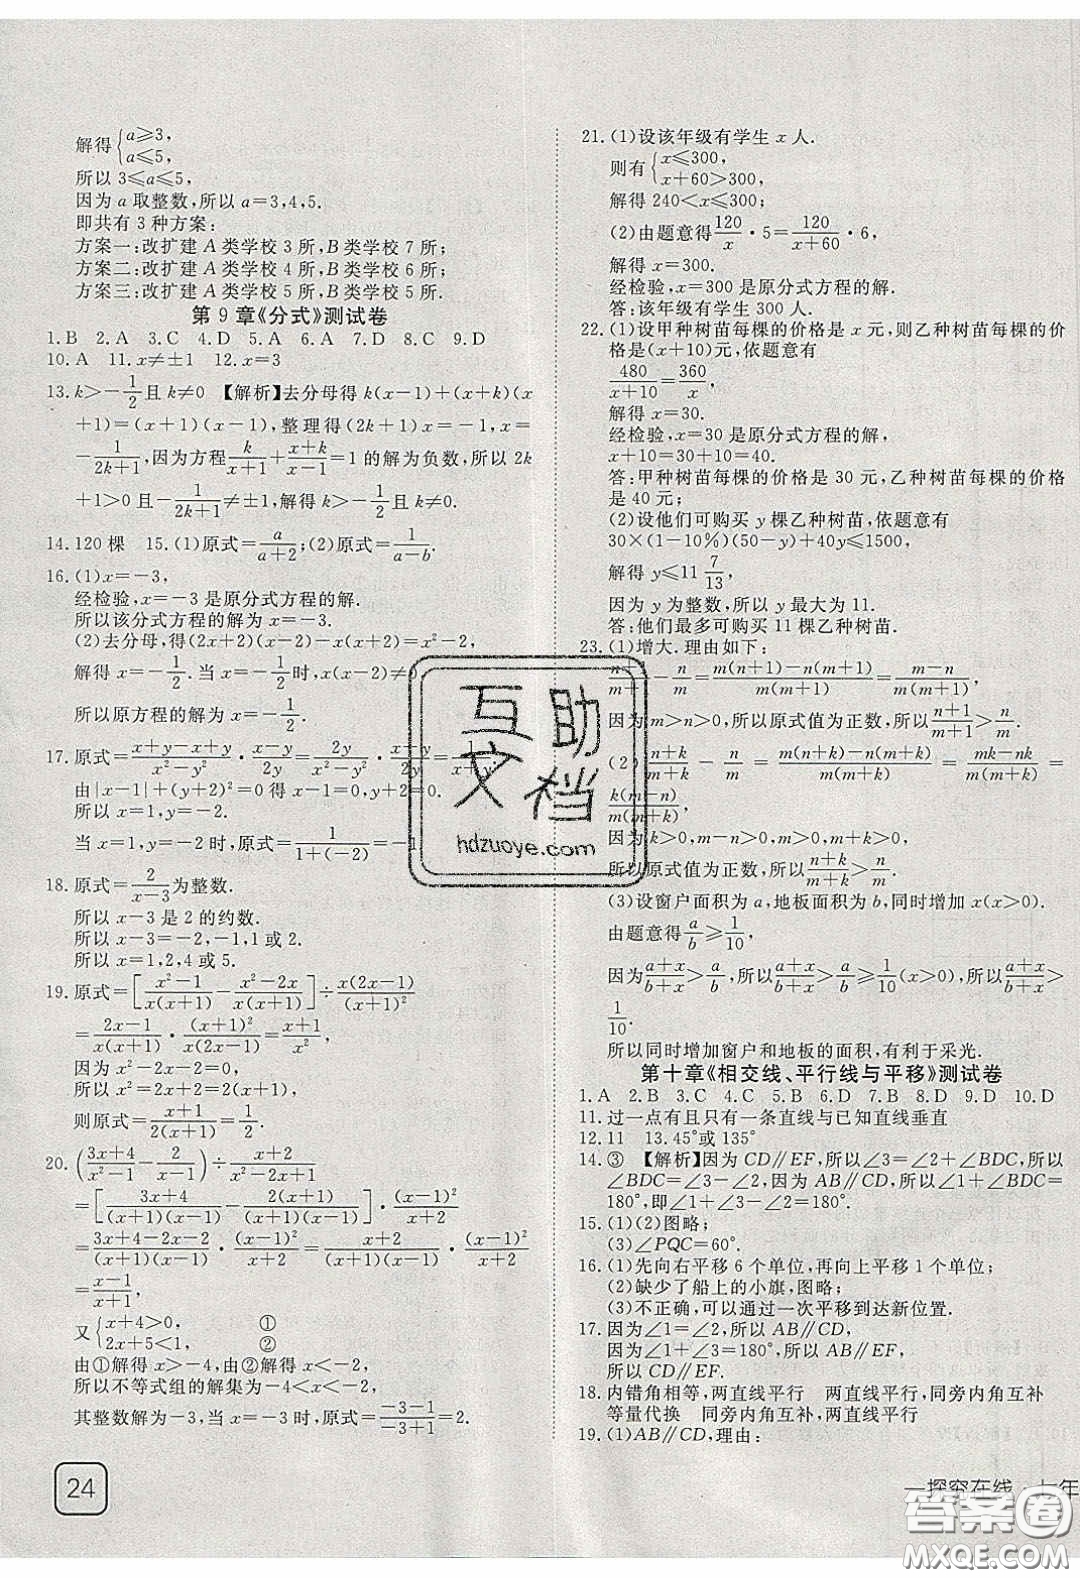 解得{a⩾3,
a⩽5,
所以 3⩽a⩽5,
因为 a 取整数,所以 a=3,4,5.
即共有 3 种方案:
方案一:改扩建 A 类学校 3 所,B类学校 7 所;
方案二:改扩建 A 类学校 4 所,B类学校 6 所;
方案三:改扩建 A 类学校 5 所,B类学校 5 所.
第 9 章《分式》测试卷
1.B 2.A 3.C 4.D 5.A 6.A 7.D 8.C 9.D
10.A 11.x≠±1 12.x=3
13.k>-1/2且 k≠0 【解析】去分母得 k(x-1)+(x+k)(x
+1)=(x+1)(x-1),整理得(2k+1)x=-1,x=
-1/(2k+1),因为方程k/(x+1)+(x+k)/(x-1)=1 的解为负数,所以 2k
+1>0 且-1/(2k+1)≠±1,解得 k>-1/2且 k≠0.
14.120 棵 15.(1)原式=a/(a+2);(2)原式=1/(a-b).
16.(1)x=-3,
经检验,x=-3 是原分式方程的解.
所以该分式方程的解为 x=-3.
(2)去分母,得(2x+2)(x-2)-x(x+2)=x²-2,
解得 x=-1/2.当 x=-1/2时,x(x-2)≠0
所以原方程的解为 x=-1/2.
17.原式=(x+y-x+y)/(x²-y²)·(x-y)/2y=2y/(x²-y²)·(x-y)/2y=1/(x+y).
由|x-1|+(y+2)²=0得 x-1=0,y+2=0.
所以 x=1,y=-2.
当 x=1,y=-2 时,原式=1/(1+(-2))=-1
18.原式=2/(x-3)为整数.
所以 x-3是 2 的约数.
所以 x-3=-2,-1,1 或 2.
所以 x=1,2,4 或 5.
19.原式=[(x²-1)/(x(x+1))-(x²-2x)/(x(x+1))]÷x(2x-1)/(x+1)²
=(2x-1)/(x(x+1))·(x+1)²/(x(2x-1))=(x+1)/x².
因为 x²-2x-2=0,
所以 x²=2x+2=2(x+1),
则原式=(x+1)/(2(x+1))=1/2.
20.((3x+4)/(x²-1)-2/(x-1))÷(x+2)/(x²-2x+1)
=[(3x+4)/((x+1)(x-1))-2(x+1)/((x+1)(x-1))]·(x-1)²/(x+2)
=(3x+4-2x-2)/((x+1)(x-1))·(x-1)²/(x+2)=(x+2)/((x+1)(x-1))·(x-1)²/(x+2)
=(x-1)/(x+1),
又{x+4>0, ①
2x+5<1, ②
由①解得 x>-4,由②解得 x<-2.
所以不等式组的解集为-4<x<-2,
其整数解为-3,当 x=-3 时,原式=(-3-1)/(-3+1)=2.
24
21.(1)设该年级有学生 x 人.
则有{x⩽300,
x+60>300,
解得 240<x⩽300.
(2)由题意得120/x·5=120/(x+60)·6,
解得 x=300.
经检验,x=300 是原分式方程的解.
答:该年级有学生 300 人.
22.(1)设甲种树苗每棵的价格是 x 元,则乙种树苗每棵的价
格是(x+10)元,依题意有
480/(x+10)=360/x,
解得 x=30.
经检验,x=30 是原分式方程的解.
x+10=30+10=40.
答:甲种树苗每棵的价格是 30 元,乙种树苗每棵的价格
是 40 元;
(2)设他们可购买 y 棵乙种树苗,依题意有
30×(1-10%)(50-y)+40y⩽1500,
解得 y⩽11 7/13,
因为 y 为整数,所以 y 最大为 11.
答:他们最多可购买 11 棵乙种树苗.
23.(1)增大.理由如下:
(n+1)/(m+1)-n/m=(m(n+1)-n(m+1))/(m(m+1))=(m-n)/(m(m+1)),
因为 m>n>0,所以原式值为正数,所以(n+1)/(m+1)>n/m.
(2)(n+k)/(m+k) - n/m = (m(n+k)-n(m+k))/(m(m+k)) = (mk-nk)/(m(m+k)) =
k(m-n)/(m(m+k)),
因为 k>0,m-n>0,m>0,m+k>0,
所以原式值为正数,所以(n+k)/(m+k)>n/m.
(3)设窗户面积为 a,地板面积为 b,同时增加 x(x>0).
由题意得a/b⩾1/10,
因为(a+x)/(b+x)>a/b,所以(a+x)/(b+x)>a/b⩾1/10(x>0),所以(a+x)/(b+x)>
1/10.
所以同时增加窗户和地板的面积,有利于采光.
第十章《相交线、平行线与平移》测试卷
1.A 2.B 3.C 4.C 5.B 6.B 7.B 8.D 9.D 10.D
11.过一点有且只有一条直线与已知直线垂直
12.11 13.45°或 135°
14.③ 【解析】因为 CD∥EF,所以∠3=∠2+∠BDC,所以
∠BDC=∠3-∠2,因为 AB∥CD,所以∠1+∠BDC=
180°,即∠1+∠3-∠2=180°.
15.(1)(2)图略;
(3)∠PQC=60°.
16.(1)先向右平移 6 个单位,再向上平移 1 个单位;
(2)缺少了船上的小旗,图略;
(3)不正确,可以通过一次平移到达新位置.
17.因为∠1=∠2,所以 AB∥CD,
因为∠1+∠3=180°,所以 AB∥EF,
所以 CD∥EF.
18.内错角相等,两直线平行 两直线平行,同旁内角互补
等量代换 同旁内角互补,两直线平行
19.(1)AB∥CD,理由:
一探究在线·七年
互助文档
hdzuoye.com
答案圈
MXQE.COM